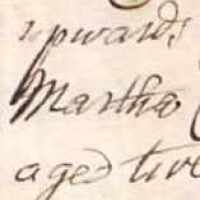 upwards
Martha
aged twe